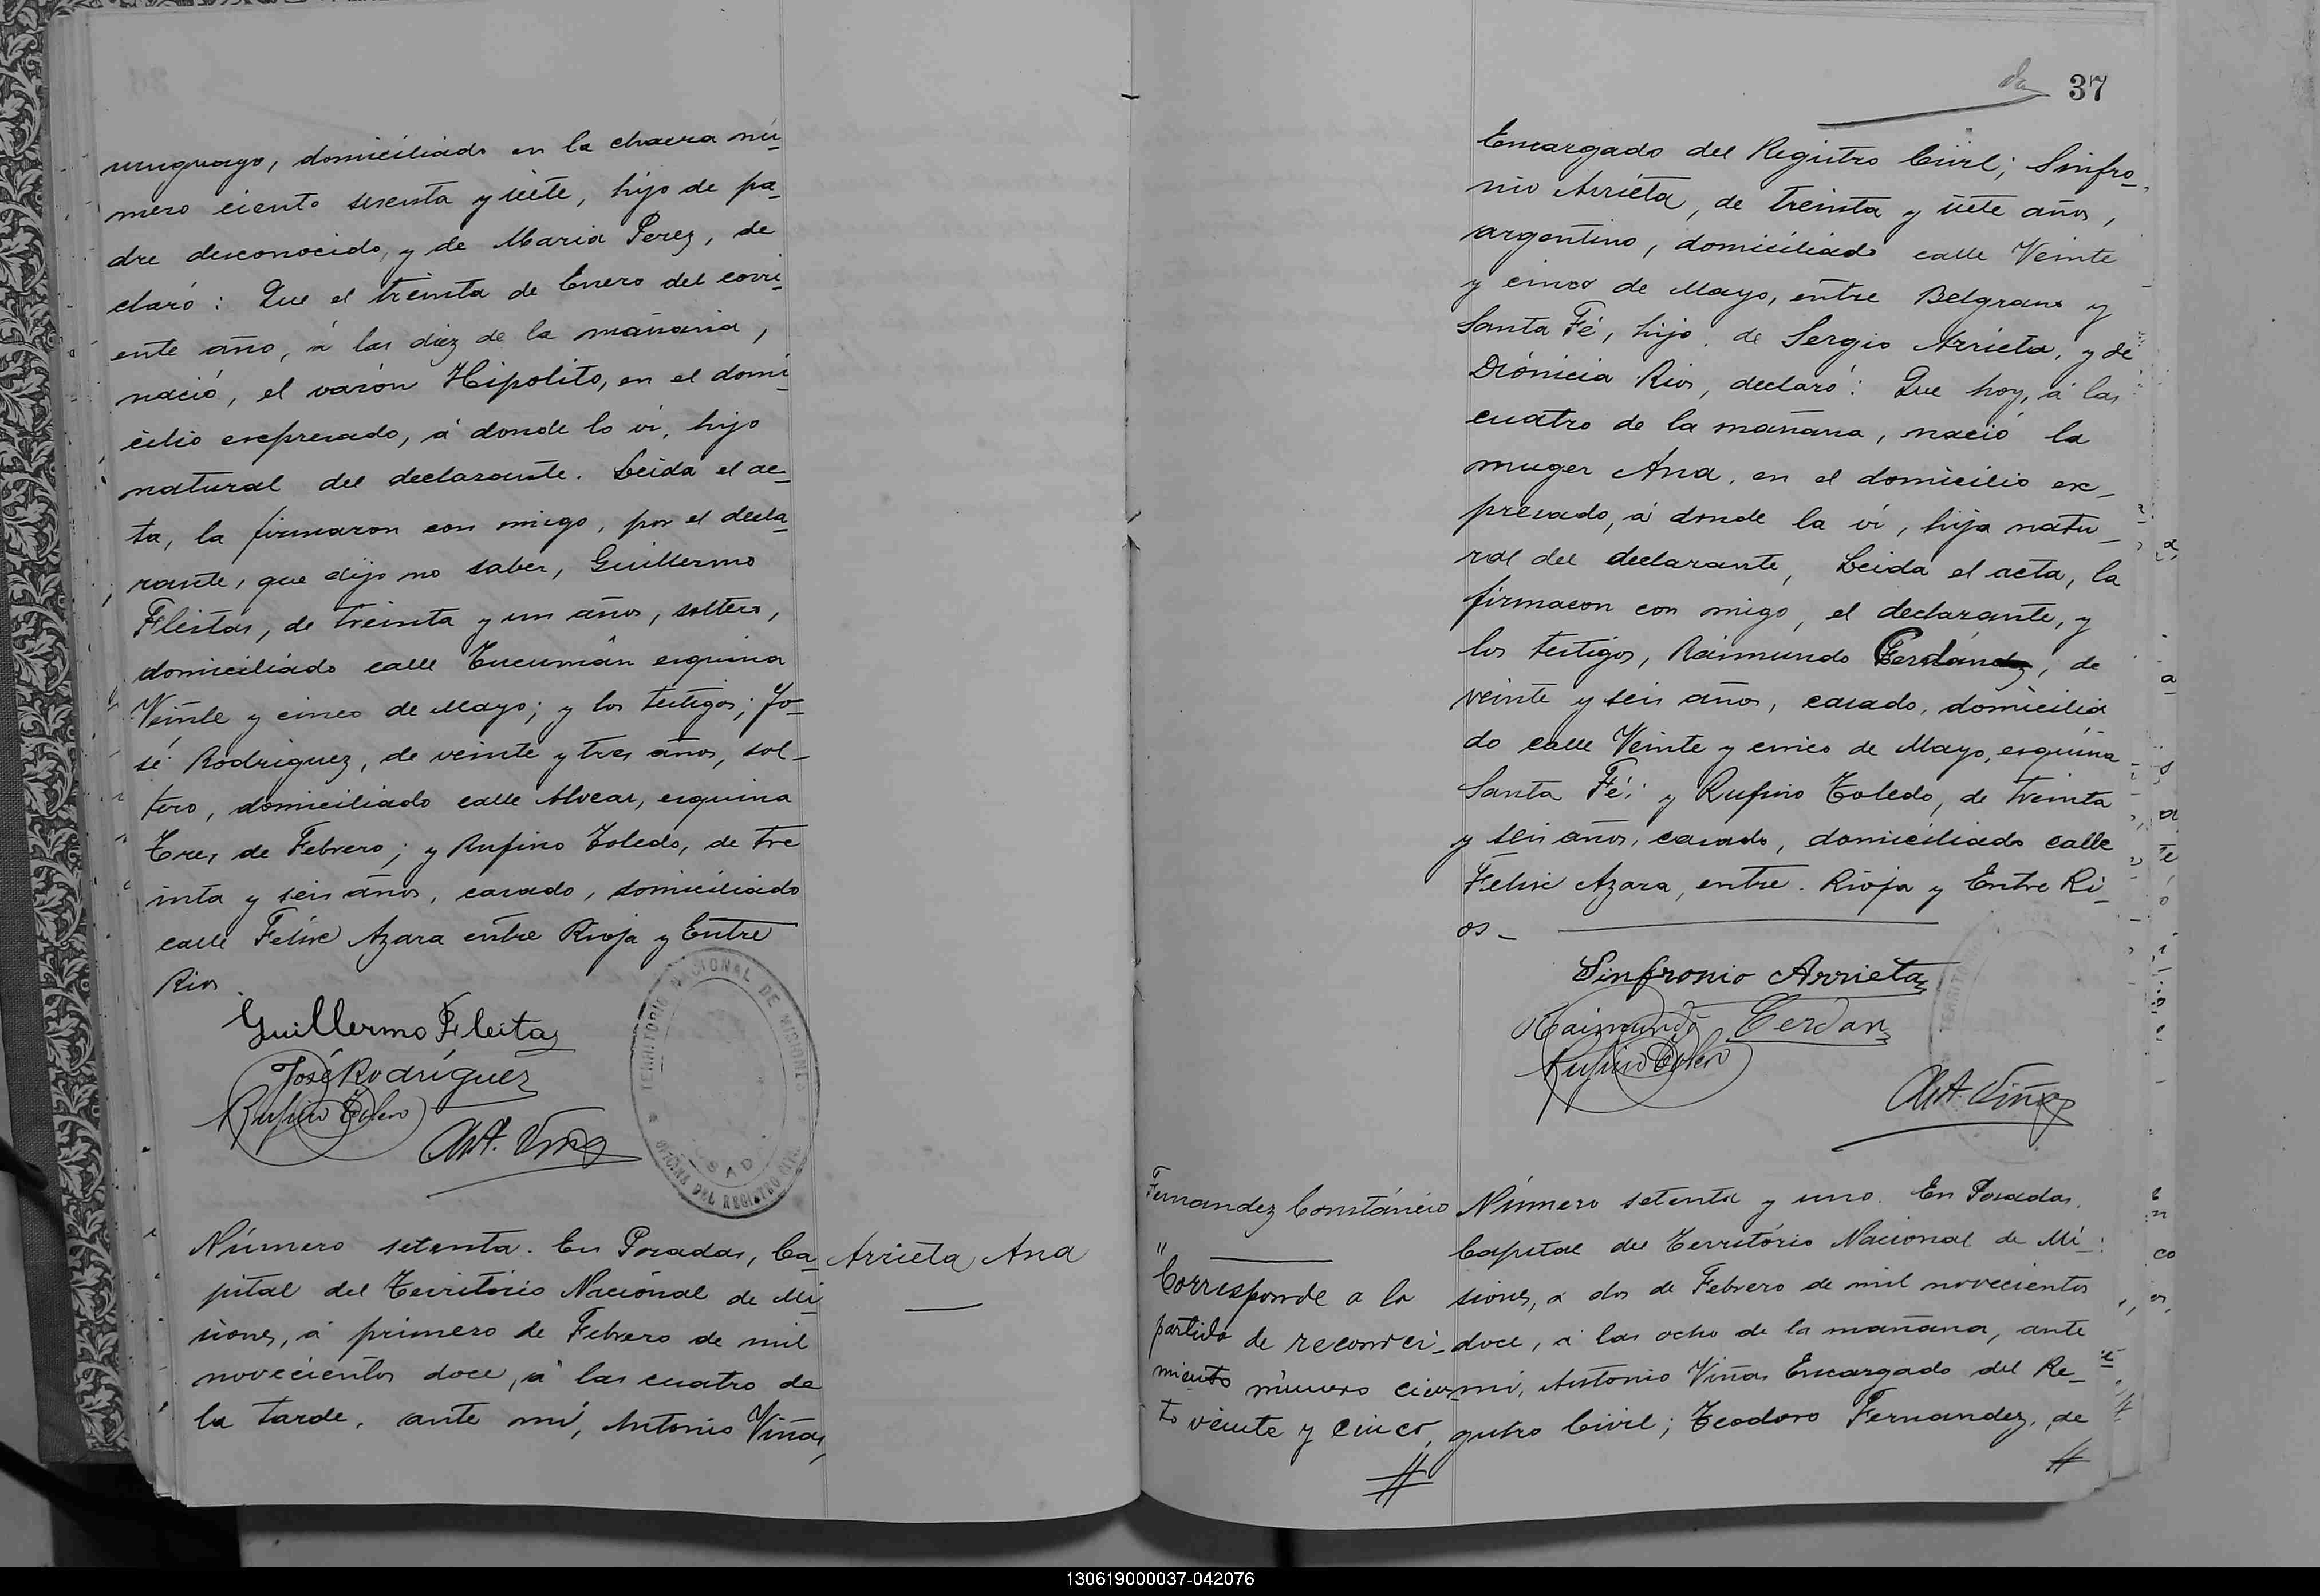 uruguayo, domiciliado en la chacra nú-
mero ciento sesenta y siete, hijo de pa-
dre desconocido, y de Maria Perez, de
claró: Que el treinta de Enero del corri-
ente año, á las diez de la mañana,
nació, el varón Hipolito, en el domi-
cilio expresado, á donde lo ví, hijo
natural del declarante. Leida el ac-
ta, la firmaron con migo, por el decla-
rante, que dijo no saber, Guillermo
Fleitas, de treinta y un años, soltero,
domiciliado calle Tucumán esquina
Veinte y cinco de Mayo; y los testigos; Jo-
sé Rodriguez, de veinte y tres años, sol-
tero, domiciliado calle Alvear, esquina
Tres de Febrero; y Rufino Toledo, de tre
inta y seis años, casado, domiciliado
calle Felix Azara entre Rioja y Entre
Rios.
Guillermo Fleitas
José Rodríguez
Rufino Toledo
Ant. Viñas
TERRITORIO NACIONAL DE MISIONES
OFICINA DEL REGISTRO CIVIL
Arrieta Ana
Número setenta. En Posadas, Ca-
pital del Territorio Nacional de Mi-
siones, á primero de Febrero de mil
novecientos doce, á las cuatro de
la tarde, ante mí, Antonio Viñas,
37
Encargado del Registro Civil; Sinfro-
nio Arrieta, de treinta y siete años,
argentino, domiciliado calle Veinte
y cinco de Mayo, entre Belgrano y
Santa Fé, hijo de Sergio Arrieta, y de
Diónicia Rios, declaró: Que hoy, á las
cuatro de la mañana, nació la
muger Ana, en el domicilio ex-
presado, á donde la ví, hija natu-
ral del declarante, Leida el acta, la
firmaron con migo, el declarante, y
los testigos, Raimundo Cerdán, de
veinte y seis años, casado, domicilia
do calle Veinte y cinco de Mayo, esquina
Santa Fé; y Rufino Toledo, de treinta
y seis años, casado, domiciliado calle
Felix Azara, entre Rioja y Entre Ri-
os-
Sinfronio Arrieta
Raimundo Cerdan
Rufino Toledo
Ant. Viñas
Fernandez Constáncio
"Corresponde a la
partida de reconoci-
miento número cien-
to veinte y cinco,
Número setenta y uno. En Posadas,
Capital del Territorio Nacional de Mi-
siones, a dos de Febrero de mil novecientos
doce, á las ocho de la mañana, ante
mí, Antonio Viñas Encargado del Re-
gistro Civil; Teodoro Fernandez, de
130619000037-042076